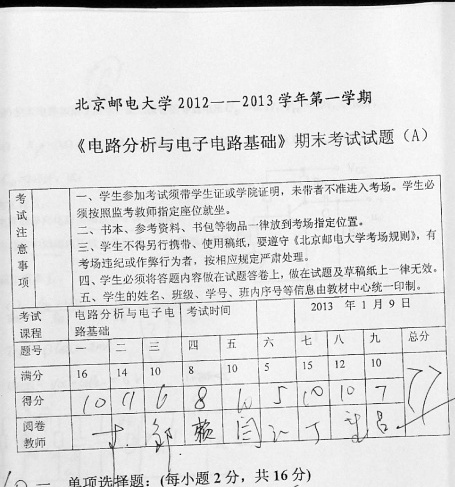 北京邮电大学 2012——2013 学年第一学期
《电路分析与电子电路基础》期末考试试题（A）
考试注意事项
一、学生参加考试须带学生证或学院证明，未带者不准进入考场。学生必
须按照监考教师指定座位就坐。
二、书本、参考资料、书包等物品一律放到考场指定位置。
三、学生不得另行携带、使用稿纸，要遵守《北京邮电大学考场规则》，有
考场违纪或作弊行为者，按相应规定严肃处理。
四、学生必须将答题内容做在试题答卷上，做在试题及草稿纸上一律无效。
五、学生的姓名、班级、学号、班内序号等信息由教材中心统一印制。
考试课程 电路分析与电子电路基础 考试时间 2013 年 1 月 9 日
题号 一 二 三 四 五 六 七 八 九 总分
满分 16 14 10 8 10 5 15 12 10
得分 10 11 6 8 6 5 10 10 7 77
阅卷教师 邹 赖 闫 丁
一、单项选择题：(每小题 2 分，共 16 分)